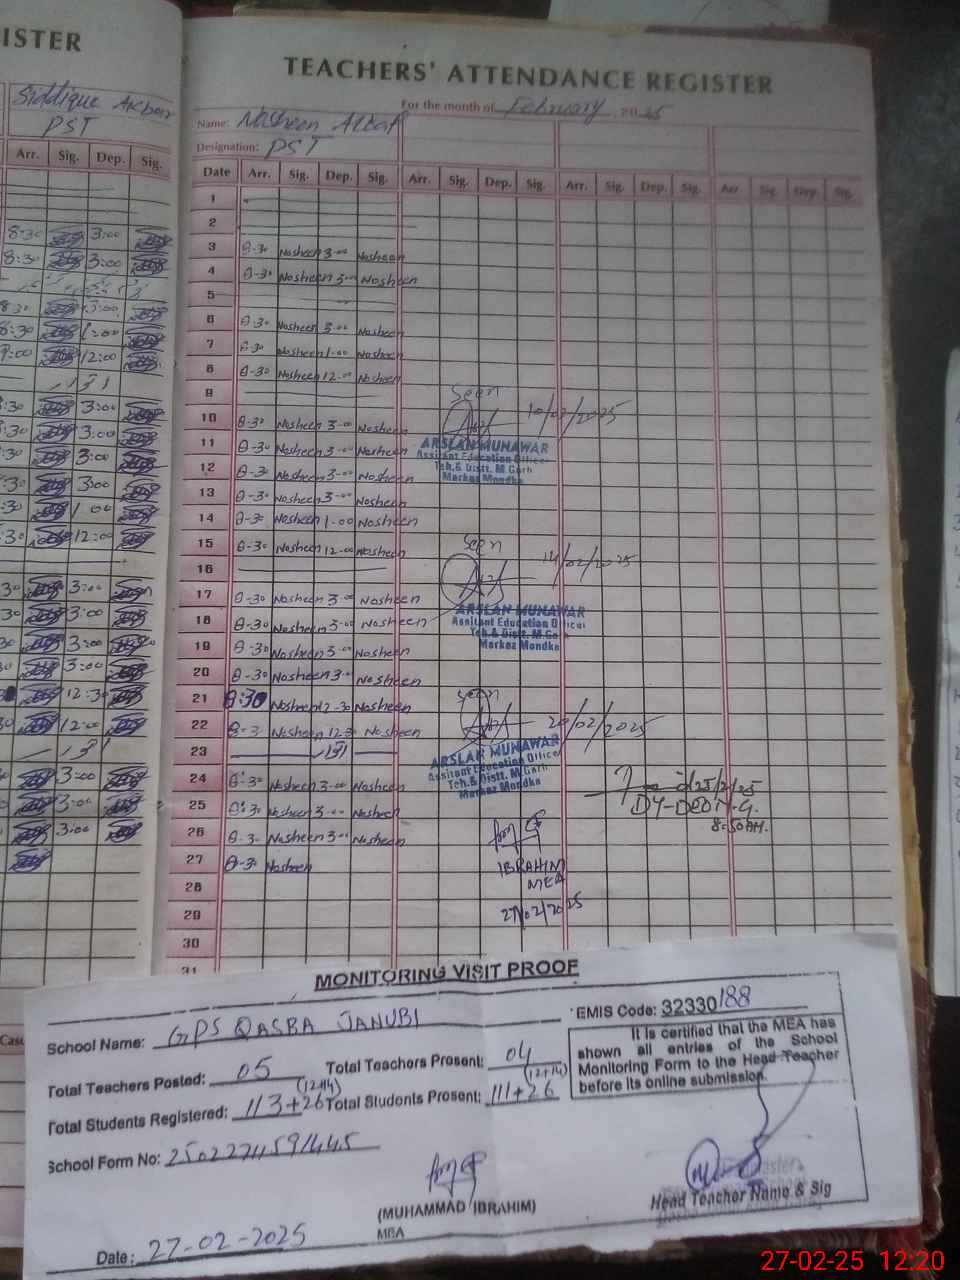 ISTER
Siddique Akbar
PST
Arr. Sig. Dep. Sig.
8-30 3:00
8:30 3:00
8:30 3:00
8:30 1:00
9:00 12:00
:30 3:00
:30 3:00
:30 3:00
:30 3:00
:30 1 00
:30 12:00
30 3:00
30 3:00
30 3:00
30 3:00
12:30
30 12:00
3:00
3:00
3:00
TEACHERS' ATTENDANCE REGISTER
For the month of February, 2025
Name: Nosheen Altaf
Designation: PST
Date Arr. Sig. Dep. Sig. Arr. Sig. Dep. Sig. Arr. Sig. Dep. Sig. Arr Sig. Dep. Sig.
1
2
3 8-30 Nosheen 3-00 Nosheen
4 8-30 Nosheen 3-00 Nosheen
5
6 8-30 Nosheen 3-00 Nosheen
7 8-30 Nosheen 1-00 Nosheen
8 8-30 Nosheen 12-00 Nosheen
9
Seen
10 8-30 Nosheen 3-00 Nosheen 10/02/2025
11 8-30 Nosheen 3-00 Nosheen
ARSLAN MUNAWAR
Assistant Education Officer
Teh.& Distt. M.Garh
Markaz Mondka
12 8-30 Nosheen 3-00 Nosheen
13 8-30 Nosheen 3-00 Nosheen
14 8-30 Nosheen 1-00 Nosheen
15 8-30 Nosheen 12-00 Nosheen
Seen
16
14/02/2025
17 8-30 Nosheen 3-00 Nosheen
18 8-30 Nosheen 3-00 Nosheen
ARSLAN MUNAWAR
Assistant Education Officer
Teh.& Distt. M.Garh
Markaz Mondka
19 8-30 Nosheen 3-00 Nosheen
20 8-30 Nosheen 3-00 Nosheen
Seen
21 8:30 Nosheen 12-30 Nosheen
22 8-3 Nosheen 12-3 Nosheen 20/02/2025
23
ARSLAN MUNAWAR
Assistant Education Officer
Teh.& Distt. M.Garh
Markaz Mondka
24 8:30 Nosheen 3-00 Nosheen
25/2/25
25 8:30 Nosheen 3-00 Nosheen
DY-DEO M.G.
8:50AM.
26 8-30 Nosheen 3-00 Nosheen
27 8-30 Nosheen
IBRAHIM
MEA
28
29
27/02/2025
30
31
MONITORING VISIT PROOF
School Name: GPS QASBA JANUBI
EMIS Code: 32330188
Total Teachers Posted: 05
Total Teachers Present: 04
(12+14) (12+14)
Total Students Registered: 113+26
Total Students Present: 111+26
It is certified that the MEA has
shown all entries of the School
Monitoring Form to the Head Teacher
before its online submission.
School Form No: 2502274591445
(MUHAMMAD IBRAHIM)
MEA
Head Teacher Name & Sig
Date: 27-02-2025
27-02-25 12:20